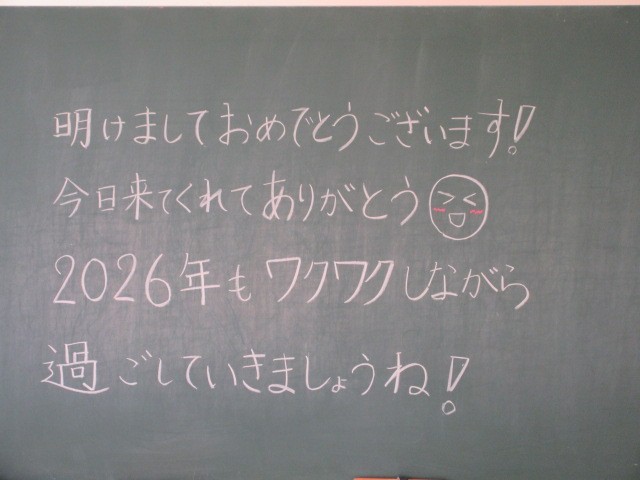 明けましておめでとうございます!
今日来てくれてありがとう
2026年もワクワクしながら
過ごしていきましょうね!